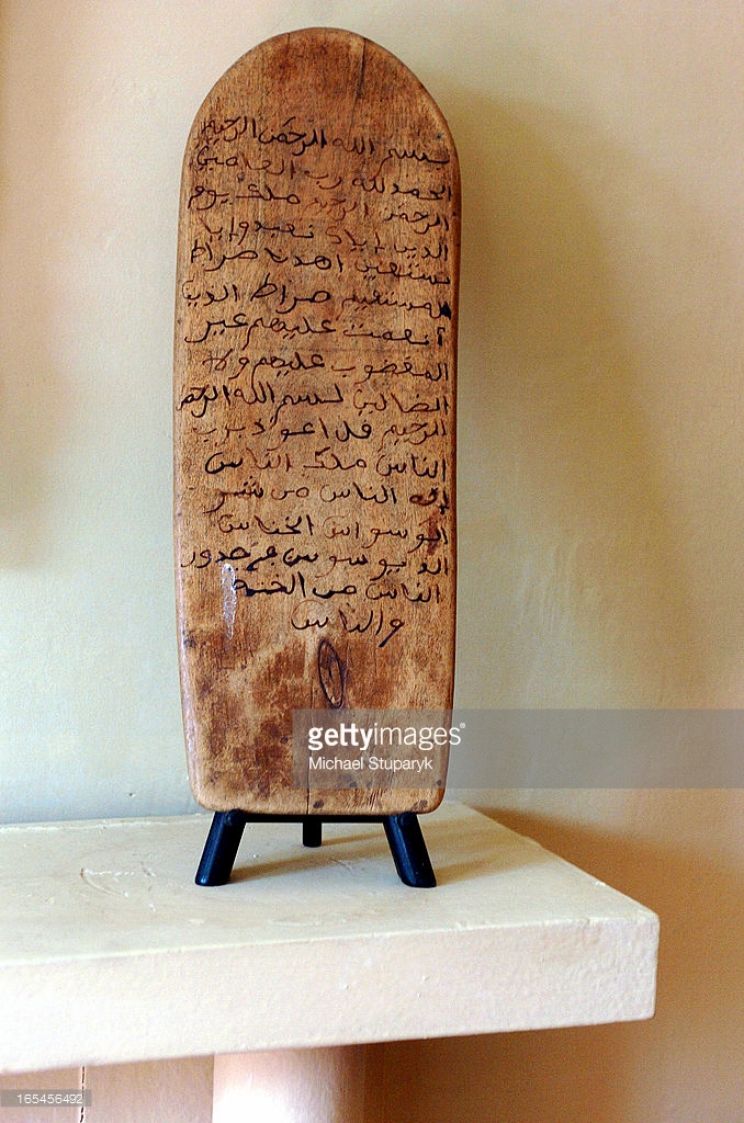 بسم الله الرحمن الرحيم
الحمد لله رب العلمين
الرحمن الرحيم ملك يوم
الدين إياك نعبدو إيا
نستعين اهدنا صراط
المستقيم صراط الدين
أنعمت عليهم غير
المغضوب عليهم ولا
الضالين بسم الله الرحمن
الرحيم قل اعوذ برب
الناس ملك الناس
إله الناس من شر
الوسواس الخناس
الد يوسوس في صدور
الناس من الجنة
والناس
gettyimages®
Michael Stuparyk
165456492